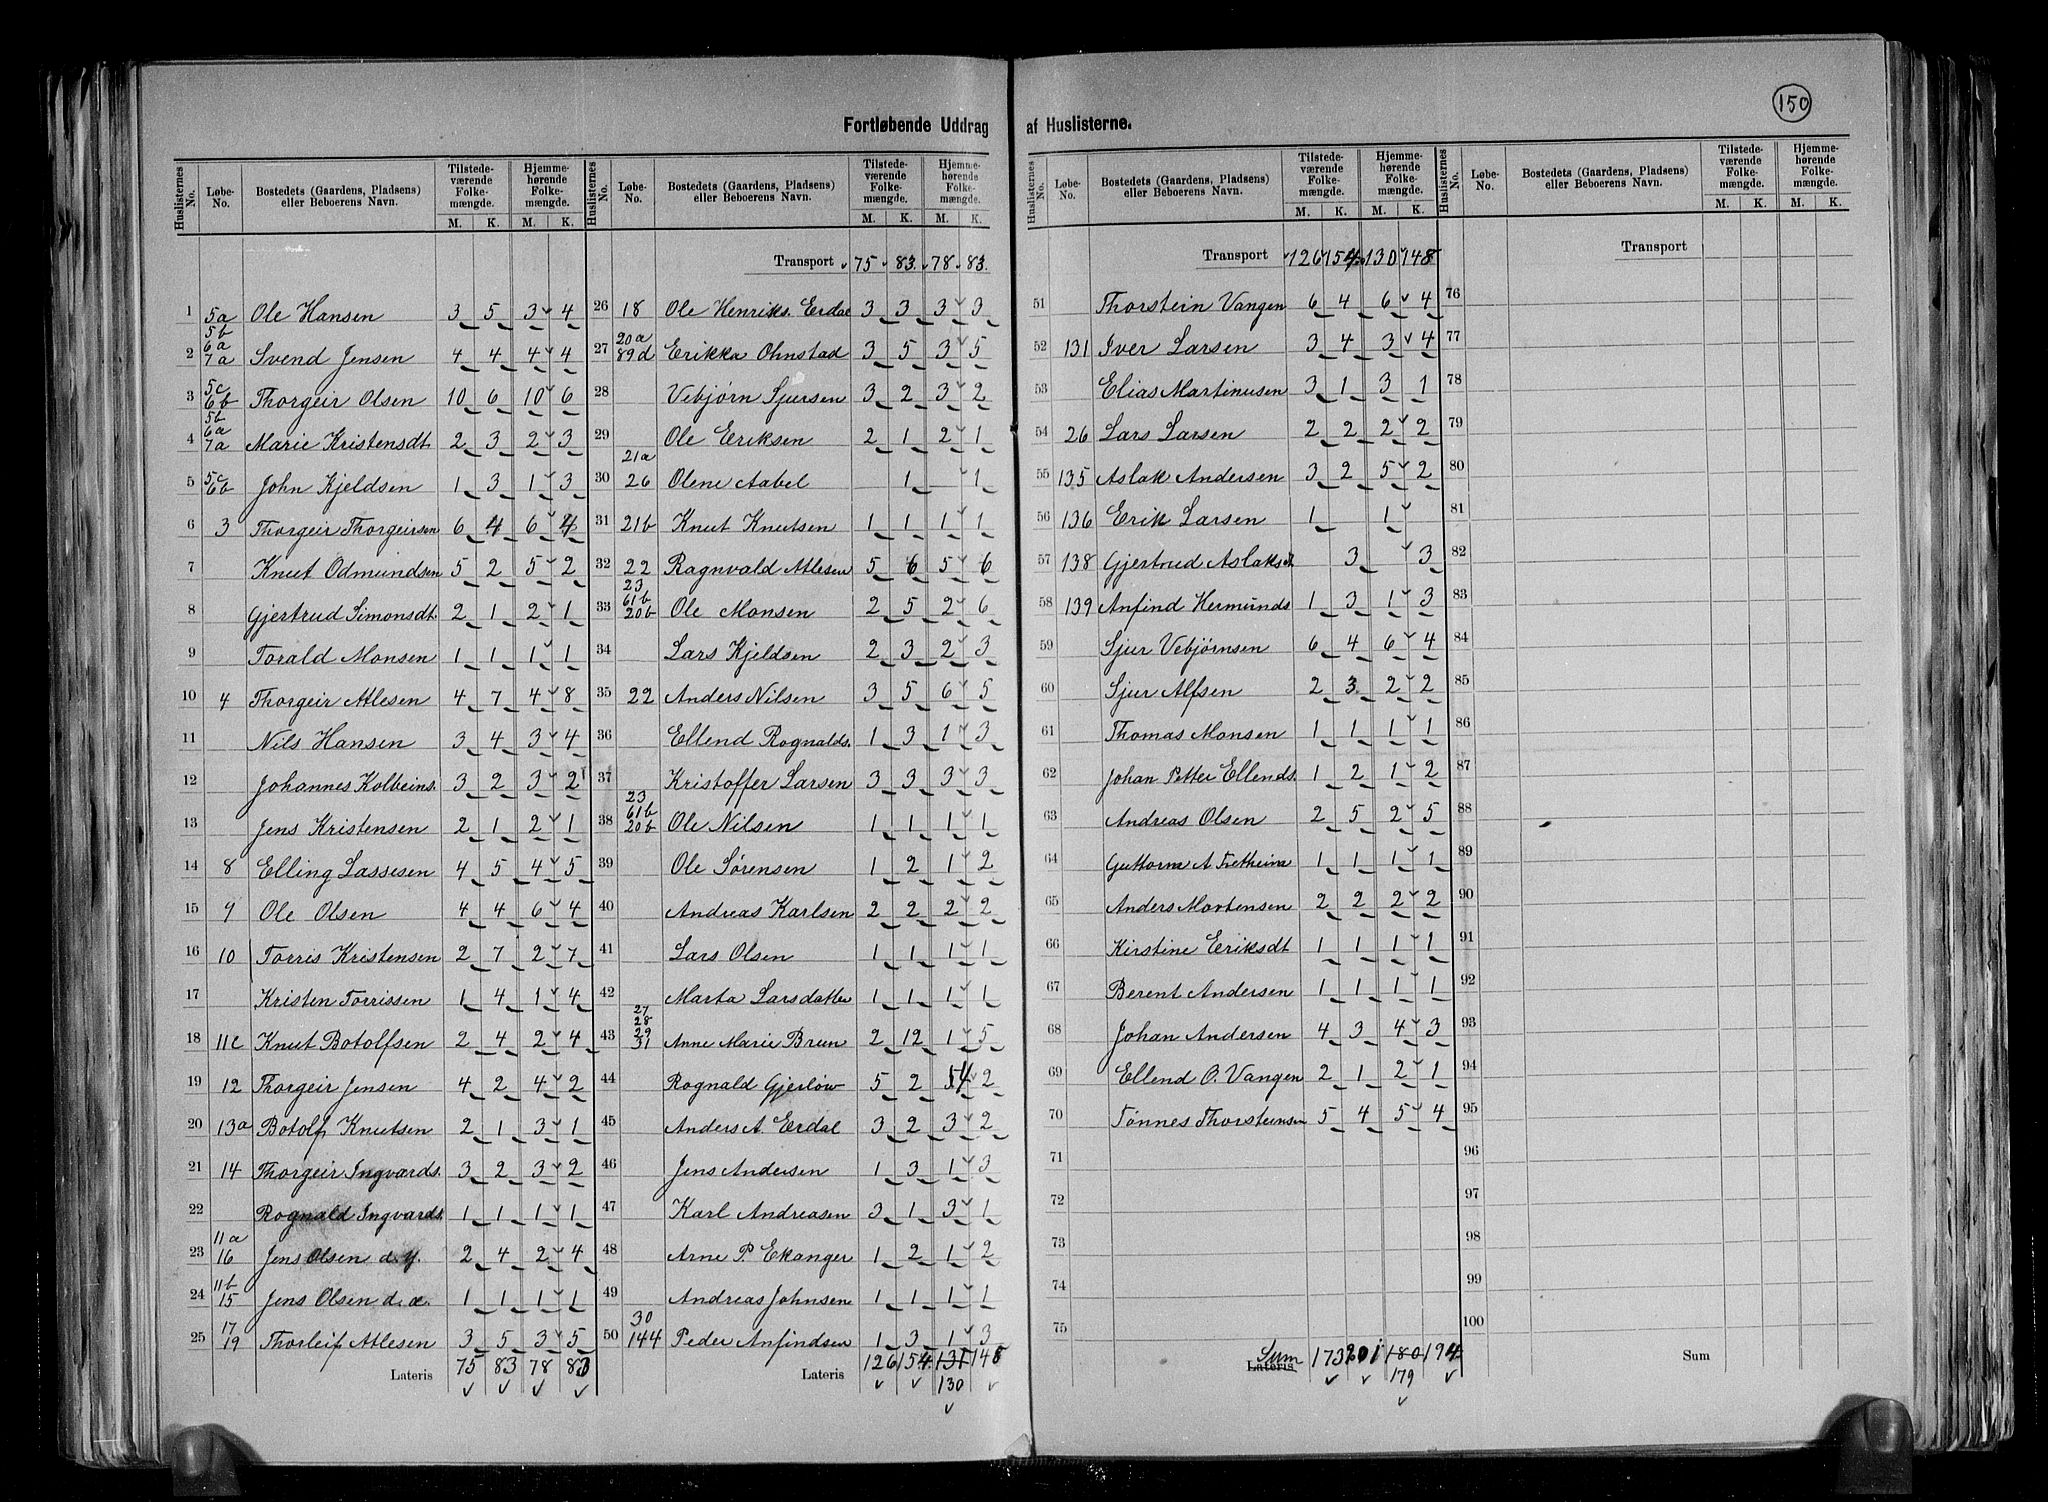 150
Fortløbende Uddrag af Huslisterne.
Huslisternes No. | Løbe-No. | Bostedets (Gaardens, Pladsens) eller Beboerens Navn. | Tilstedeværende Folkemængde. M. K. | Hjemmehørende Folkemængde. M. K.
1 5a Ole Hansen 3 5 3 4
2 5b 6a 7a Svend Jensen 4 4 4 4
3 5c 6b Thorgeir Olsen 10 6 10 6
4 5b 6a 7a Marie Kristensdt 2 3 2 3
5 5c 6b John Kjeldsen 1 3 1 3
6 3 Thorgeir Thorgeirsen 6 4 6 4
7 Knut Odmundsen 5 2 5 2
8 Gjertrud Simonsdt. 2 1 2 1
9 Torald Monsen 1 1 1 1
10 4 Thorgeir Atlesen 4 7 4 8
11 Nils Hansen 3 4 3 4
12 Johannes Kolbeins. 3 2 3 2
13 Jens Kristensen 2 1 2 1
14 8 Elling Lassesen 4 5 4 5
15 9 Ole Olsen 4 4 6 4
16 10 Torris Kristensen 2 7 2 7
17 Kristen Torrissen 1 4 1 4
18 11c Knut Botolfsen 2 4 2 4
19 12 Thorgeir Jensen 4 2 4 2
20 13a Botolf Knutsen 2 1 3 1
21 14 Thorgeir Ingvards. 3 2 3 2
22 Rognald Ingvards. 1 1 1 1
23 11a 16 Jens Olsen d.y. 2 4 2 4
24 11b 15 Jens Olsen d.æ. 1 1 1 1
25 17 19 Thorleif Atlesen 3 5 3 5
Lateris 75 83 78 83
Huslisternes No. | Løbe-No. | Bostedets (Gaardens, Pladsens) eller Beboerens Navn. | Tilstedeværende Folkemængde. M. K. | Hjemmehørende Folkemængde. M. K.
Transport 75 83 78 83
26 18 Ole Henriks. Erdal 3 3 3 3
27 20a 89d Erikka Ohnstad 3 5 3 5
28 Vebjørn Sjursen 3 2 3 2
29 Ole Eriksen 2 1 2 1
30 21a 26 Olene Aabel 1 1
31 21b Knut Knutsen 1 1 1 1
32 22 Ragnvald Atlesen 5 6 5 6
33 23 61b 20b Ole Monsen 2 5 2 6
34 Lars Kjeldsen 2 3 2 3
35 22 Anders Nilsen 3 5 6 5
36 Ellend Rognalds. 1 3 1 3
37 Kristoffer Larsen 3 3 3 3
38 23 61b 20b Ole Nilsen 1 1 1 1
39 Ole Sørensen 1 2 1 2
40 Andreas Karlsen 2 2 2 2
41 Lars Olsen 1 1 1 1
42 Marta Larsdatter 1 1 1 1
43 27 28 29 31 Anne Marie Bruun 2 12 1 5
44 Rognald Gjerløw 5 2 5 4 2
45 Anders A Erdal 3 2 3 2
46 Jens Andersen 1 3 1 3
47 Karl Andreasen 3 1 3 1
48 Arne P. Ekanger 1 2 1 2
49 Andreas Johnsen 1 1 1 1
50 30 144 Peder Anfindsen 1 3 1 3
Lateris 126 154 131 148
130
Huslisternes No. | Løbe-No. | Bostedets (Gaardens, Pladsens) eller Beboerens Navn. | Tilstedeværende Folkemængde. M. K. | Hjemmehørende Folkemængde. M. K.
Transport 126 154 130 148
51 Thorstein Vangen 6 4 6 4
52 131 Iver Larsen 3 4 3 4
53 Elias Martinusen 3 1 3 1
54 26 Lars Larsen 2 2 2 2
55 135 Aslak Andersen 3 2 5 2
56 136 Erik Larsen 1 1
57 138 Gjertrud Aslaksd. 3 3
58 139 Anfind Hermunds 1 3 1 3
59 Sjur Vebjørnsen 6 4 6 4
60 Sjur Alfsen 2 3 2 2
61 Thomas Monsen 1 1 1 1
62 Johan Petter Ellends. 1 2 1 2
63 Andreas Olsen 2 5 2 5
64 Guttorm A Fretheim 1 1 1 1
65 Anders Mortensen 2 2 2 2
66 Kirstine Eriksdt 1 1 1 1
67 Berent Andersen 1 1 1 1
68 Johan Andersen 4 3 4 3
69 Ellend O. Vangen 2 1 2 1
70 Tønnes Thorsteinsen 5 4 5 4
71
72
73
74
75
Sum
Lateris 173 201 180 194
179
Huslisternes No. | Løbe-No. | Bostedets (Gaardens, Pladsens) eller Beboerens Navn. | Tilstedeværende Folkemængde. M. K. | Hjemmehørende Folkemængde. M. K.
Transport
76
77
78
79
80
81
82
83
84
85
86
87
88
89
90
91
92
93
94
95
96
97
98
99
100
Sum